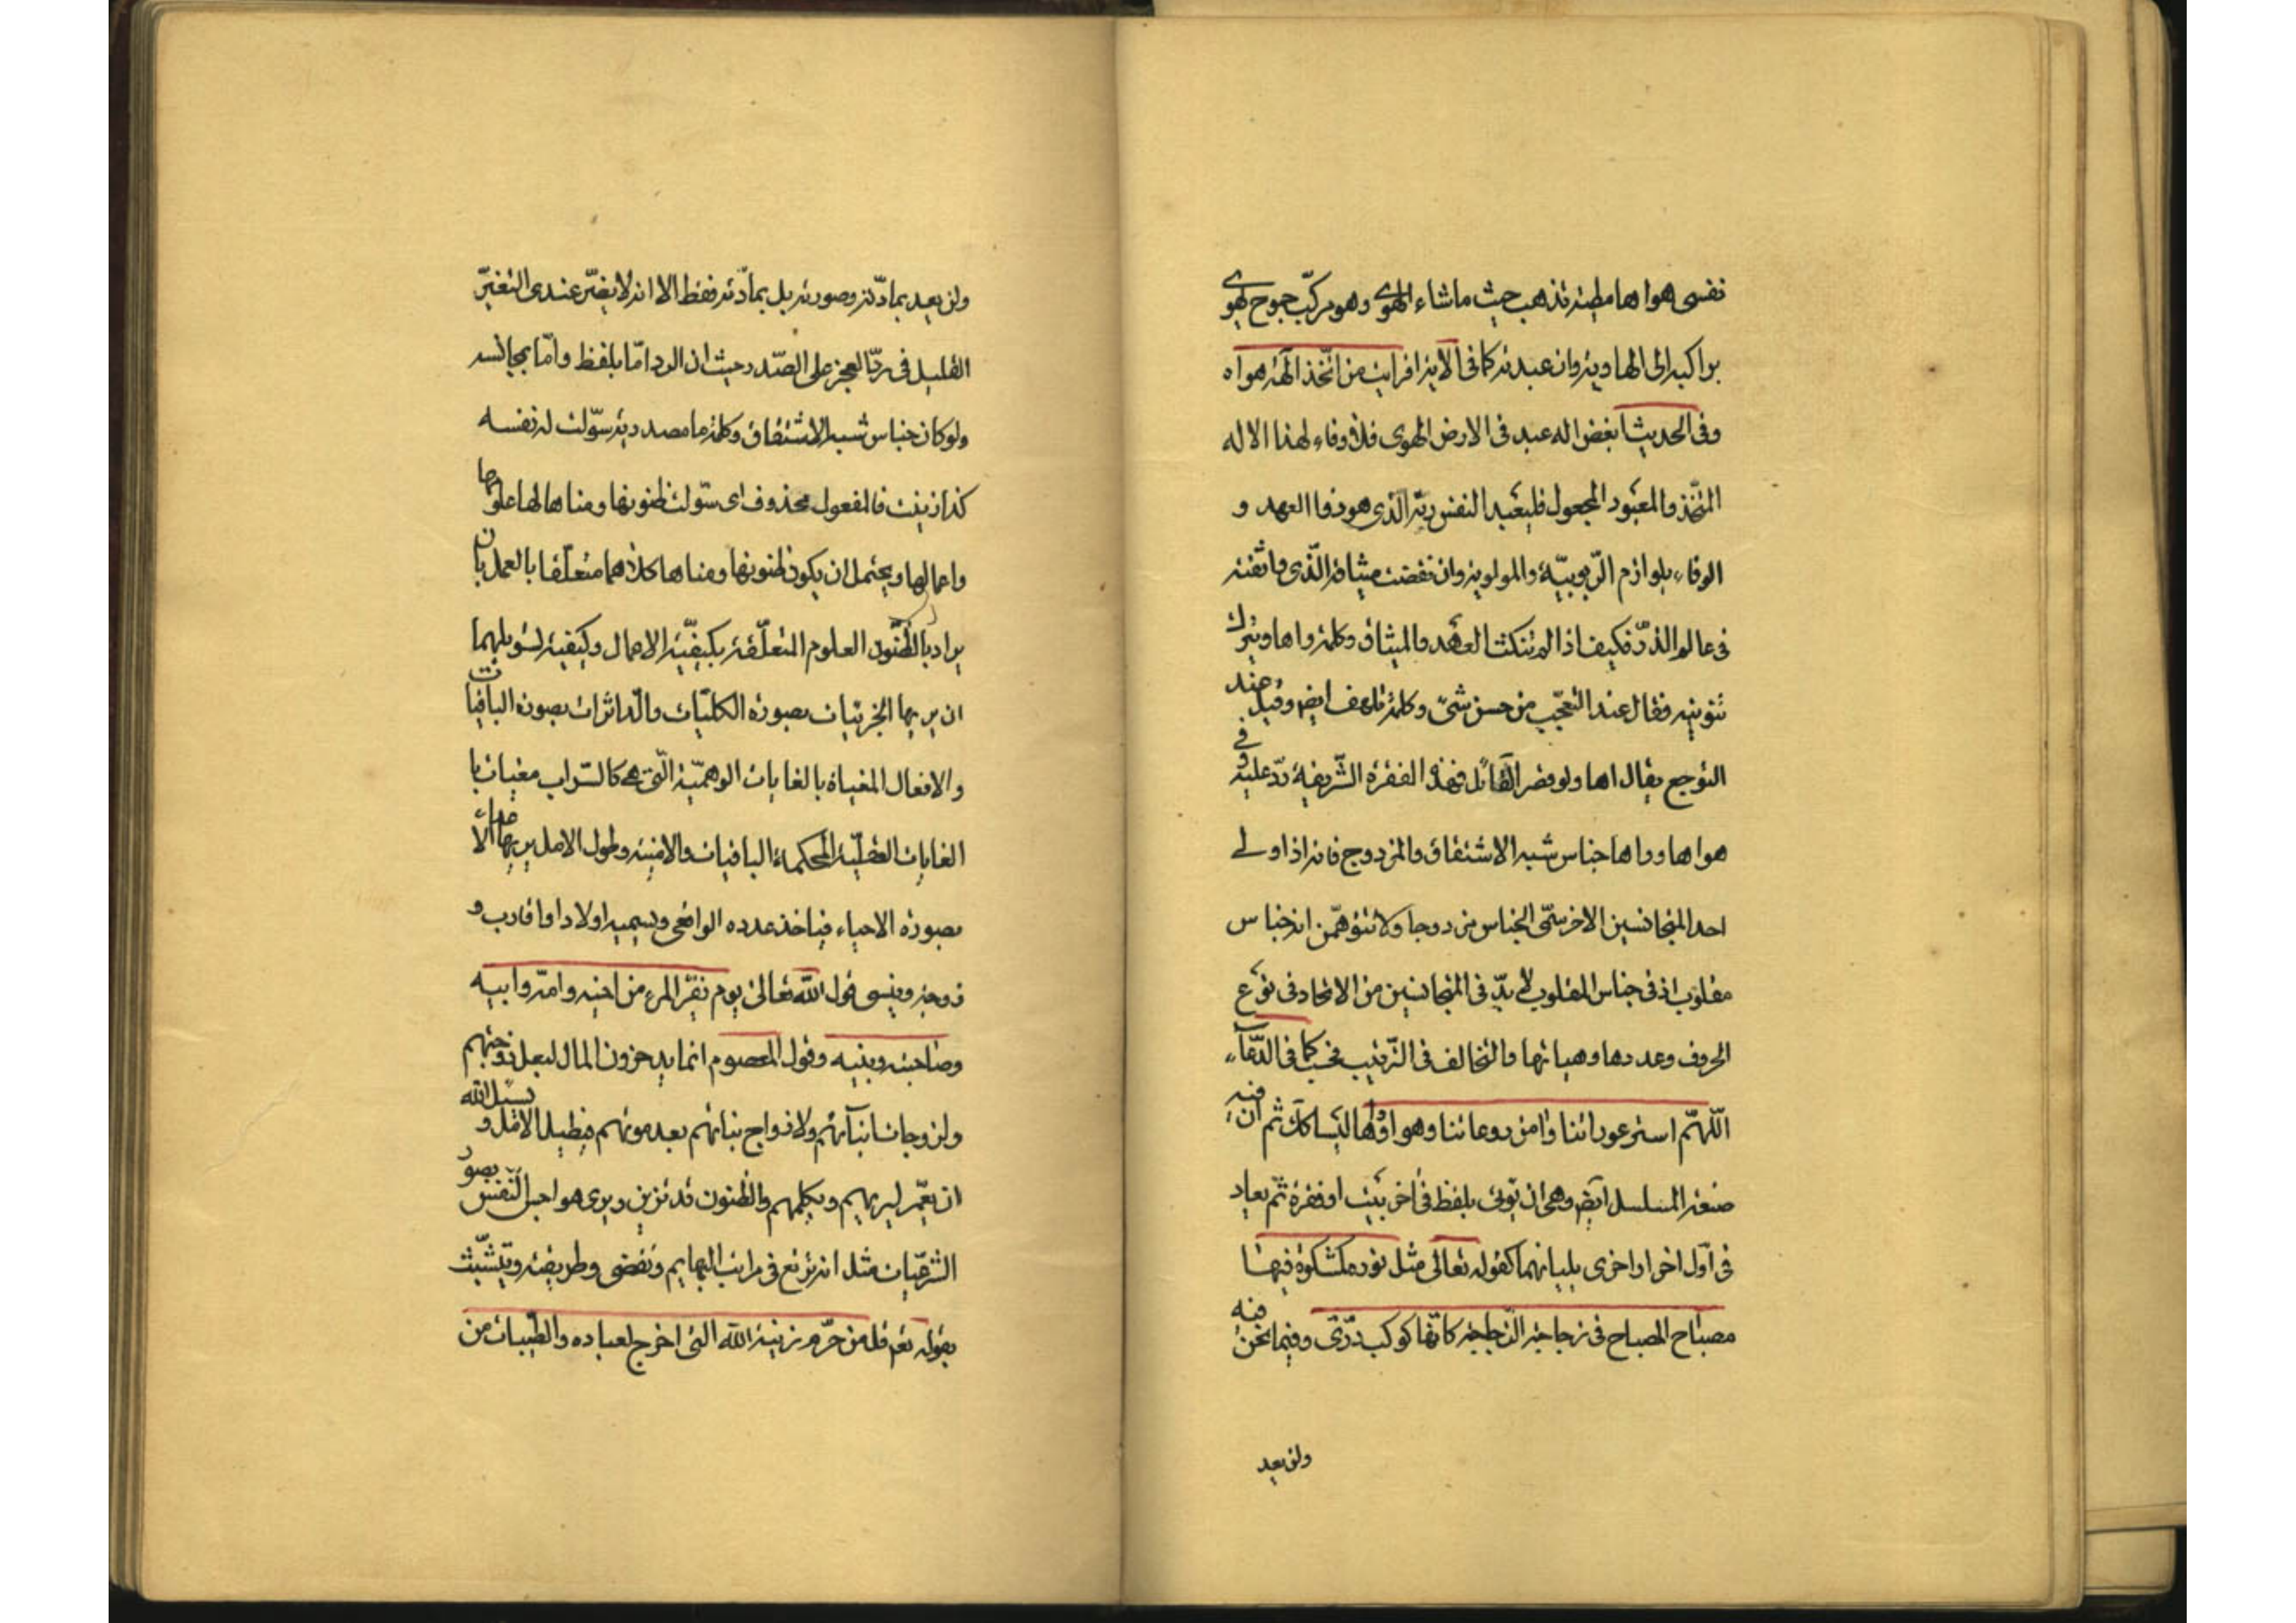 نفسی هواها مطیته تذهب حیث ما شاء الهوی وهو مرکّب جموح یهوی
براکبه الی الهاویه وان عبدته کما فی الآیه افرایت من اتّخذ الهه هواه
وفی الحدیث ابغض اله عبد فی الارض الهوی فلا وفاء لهذا الاله
المتّخذ والمعبود المجعول فلیعبد النفس ربّه الذی هو ذو العهد و
الوفاء بلوازم الرّبوبیّة والمولویه وان نقضت میثاقه الّذی واثقته
فی عالم الذرّ فکیف اذا لم تنکث العهد والمیثاق وکلمه واها ویترک
تنوینه فقال عند التعجّب من حسن شیء وکلمة تلهف ایض وقیل عند
التوجع یقال اها ولو قصر القائل فهذه الفقرة الشّریفة ردّ علیه وفی
هواها وواها جناس شبه الاشتقاق والمزدوج فانه اذا ولی
احد المتجانسین الاخر سمّی الجناس مزدوجا ولا تتوهّمن انه جناس
مقلوب اذ فی جناس المقلوب لا بدّ فی المتجانسین من الاتحاد فی نوع
الحروف وعددها وهیاتها والتخالف فی التّرتیب فحسب کما فی الدّعآء
اللّهمّ استر عوراتنا وامن روعاتنا وهواها لیسا کک ثم ان فیه
صنعه المسلسل ایض وهی ان یؤتی بلفظ فی اخر بیت او فقرة ثمّ یعاد
فی اوّل اخر او اخری یلیانهما کقوله تعالی مثل نوره کمشکوة فیها
مصباح المصباح فی زجاجه الزّجاجه کانّها کوکب درّی وفیما نحن فیه
ولن یعد
ولن یعد بمادّته وصورته بل بمادّته فقط الا انه لا یغیّر عندی التغیّر
القلیل فی ردّ العجز علی الصّدر حیث ان الرد امّا بلفظ وامّا بمجانسه
ولو کان جناس شبه الاشتقاق وکلمه ما مصدریه سوّلت له نفسه
کذا زینت فالمفعول محذوف ای سوّلت ظنونها ومناها لها علومها
واعمالها ویحتمل ان یکون ظنونها ومناها کلاهما متعلّقا بالعمل بان
یراد بالظّنون العلوم المتعلّقة بکیفیّة الاعمال وکیفیة تسویلهما
ان یریها الجزئیات بصورة الکلیّات والدّاثرات بصورة الباقیات
والافعال المغیاة بالغایات الوهمیّة الّتی هی کالسّراب مغیات با
الغایات العقلیّه المحکمة الباقیات والامنیه وطول الامل یریها
بصورة الاحیاء فیاخذ عدده الواقی ویسمیه اولادا واقارب و
زوجه وینسی قول اللّه تعالی یوم یفرّ المرء من اخیه وامّه وابیه
وصاحبته وبنیه وقول المعصوم انما یدخرون المال لبعل زوجتهم
ولزوجات ابنآئهم ولازواج بناتهم بعد موتهم فیطیل الامل و یسئل اللّه
ان یعمّر لیربهیم ویکلمهم والظنون قد تزین ویری هواجس النّفس بصور
الشّرعیّات مثل انه یرتع فی مراتب البهایم وتقضی وطر یفته ویتشبّث
بقوله تعم قل من حرّم زینة اللّه التی اخرج لعباده والطّیبات من